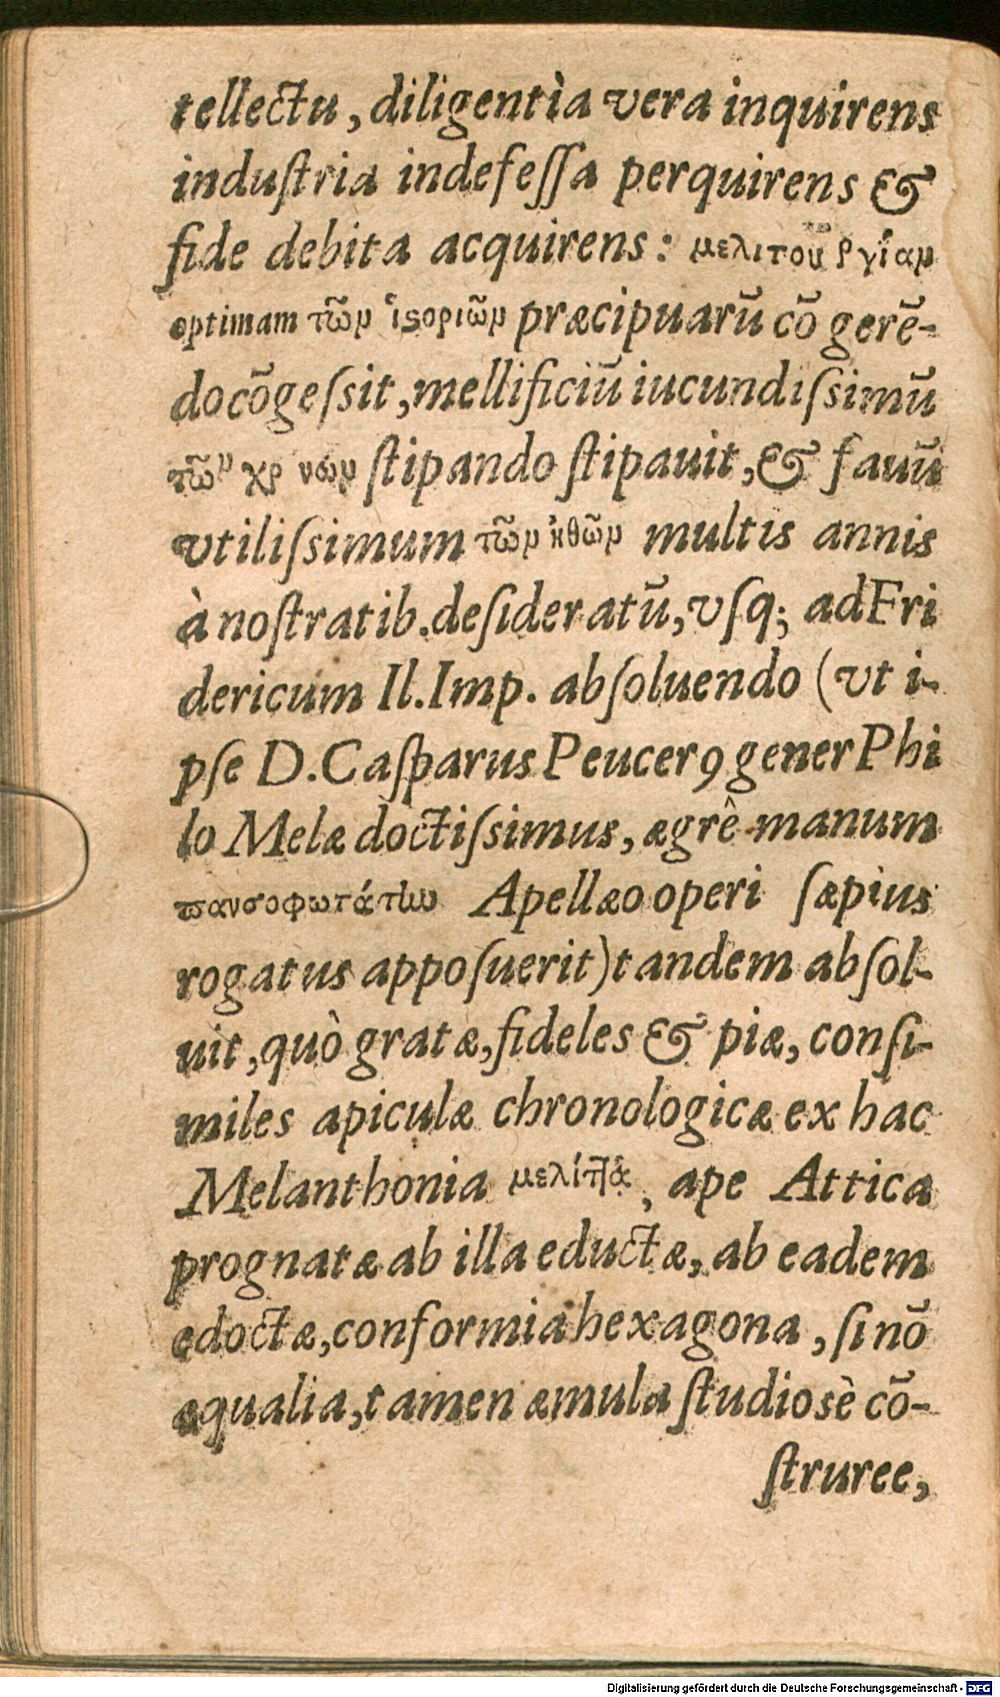 tellectu, diligentìa vera inquirens
induſtria indefeſſa perquirens &
fide debita acquirens: μελιτουργίαν
optimam τῶν ἱςοριῶν præcipuarū cō gerē-
do cōgeſsit, mellificiū iucundiſsimū
τῶν χρ νων ſtipando ſtipauit, & fauū
vtiliſsimum τῶν ἠθῶν multis annis
à noſtratib. deſideratū, vſq; ad Fri
dericum II. Imp. abſoluendo (vt i-
pſe D. Caſparus Peucerꝰ gener Phi
lo Melæ doctiſsimus, ægrê manum
πανσοφωτάτῳ Apellæo operi ſæpius
rogatus appoſuerit) tandem abſol-
uit, quò gratæ, fideles & piæ, conſi-
miles apiculæ chronologicæ ex hac
Melanthonia μελίτ]ᾳ, ape Attica
prognatæ ab illa eductæ, ab eadem
edoctæ, conformia hexagona, ſi nō
æqualia, tamen æmula ſtudiosè cō-
ſtruree,
Digitalisierung gefördert durch die Deutsche Forschungsgemeinschaft - DFG